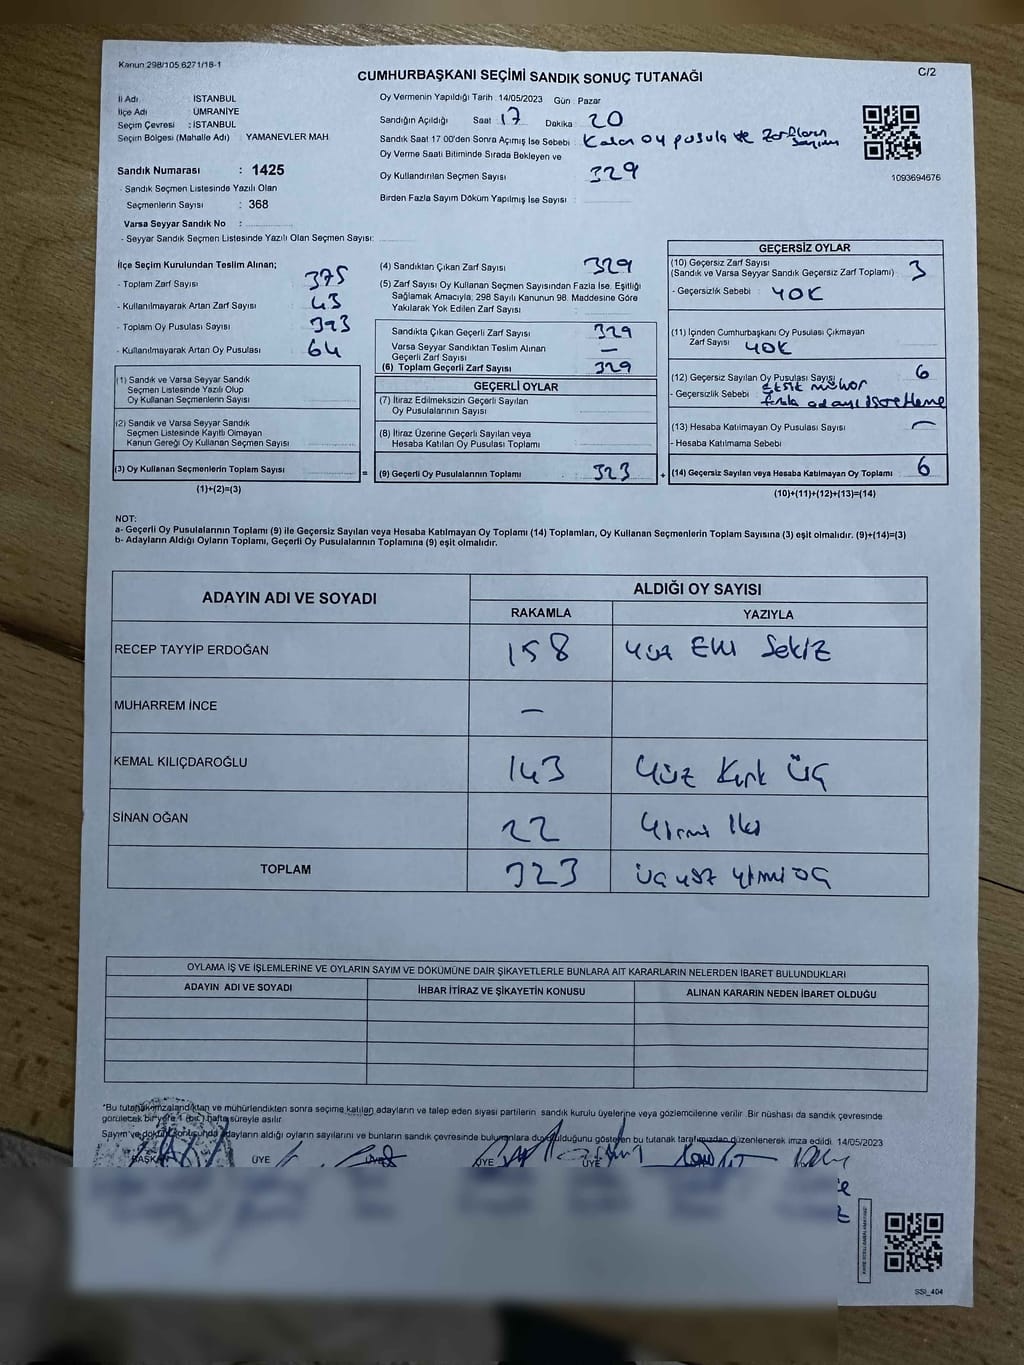 Kanun 298/105 6271/18-1
CUMHURBAŞKANI SEÇİMİ SANDIK SONUÇ TUTANAĞI
C/2
İl Adı : İSTANBUL
İlçe Adı : ÜMRANİYE
Seçim Çevresi : İSTANBUL
Seçim Bölgesi (Mahalle Adı) : YAMANEVLER MAH.
Sandık Numarası : 1425
- Sandık Seçmen Listesinde Yazılı Olan
Seçmenlerin Sayısı : 368
Varsa Seyyar Sandık No :
- Seyyar Sandık Seçmen Listesinde Yazılı Olan Seçmen Sayısı:
Oy Vermenin Yapıldığı Tarih : 14/05/2023 Gün : Pazar
Sandığın Açıldığı Saat : 17 Dakika : 20
Sandık Saat 17 00'den Sonra Açımış İse Sebebi : Kalan oy pusula ve Zarfların sayımı
Oy Verme Saati Bitiminde Sırada Bekleyen ve
Oy Kullandırılan Seçmen Sayısı : 329
Birden Fazla Sayım Döküm Yapılmış İse Sayısı :
1093694676
İlçe Seçim Kurulundan Teslim Alınan;
- Toplam Zarf Sayısı : 375
- Kullanılmayarak Artan Zarf Sayısı : 43
- Toplam Oy Pusulası Sayısı : 393
- Kullanılmayarak Artan Oy Pusulası : 64
(1) Sandık ve Varsa Seyyar Sandık
Seçmen Listesinde Yazılı Olup
Oy Kullanan Seçmenlerin Sayısı :
(2) Sandık ve Varsa Seyyar Sandık
Seçmen Listesinde Kayıtlı Olmayan
Kanun Gereği Oy Kullanan Seçmen Sayısı :
(3) Oy Kullanan Seçmenlerin Toplam Sayısı :
(1)+(2)=(3)
(4) Sandıktan Çıkan Zarf Sayısı : 329
(5) Zarf Sayısı Oy Kullanan Seçmen Sayısından Fazla İse, Eşitliği
Sağlamak Amacıyla; 298 Sayılı Kanunun 98. Maddesine Göre
Yakılarak Yok Edilen Zarf Sayısı :
Sandıkta Çıkan Geçerli Zarf Sayısı : 329
Varsa Seyyar Sandıktan Teslim Alınan
Geçerli Zarf Sayısı : —
(6) Toplam Geçerli Zarf Sayısı : 329
GEÇERLİ OYLAR
(7) İtiraz Edilmeksizin Geçerli Sayılan
Oy Pusulalarının Sayısı :
(8) İtiraz Üzerine Geçerli Sayılan veya
Hesaba Katılan Oy Pusulası Toplamı :
= (9) Geçerli Oy Pusulalarının Toplamı : 323 +
GEÇERSİZ OYLAR
(10) Geçersiz Zarf Sayısı
(Sandık ve Varsa Seyyar Sandık Geçersiz Zarf Toplamı) : 3
- Geçersizlik Sebebi : YOK
(11) İçinden Cumhurbaşkanı Oy Pusulası Çıkmayan
Zarf Sayısı : YOK
(12) Geçersiz Sayılan Oy Pusulası Sayısı : 6
- Geçersizlik Sebebi : Eksik mühür
fazla adayı işaretleme
(13) Hesaba Katılmayan Oy Pusulası Sayısı : —
- Hesaba Katılmama Sebebi :
(14) Geçersiz Sayılan veya Hesaba Katılmayan Oy Toplamı : 6
(10)+(11)+(12)+(13)=(14)
NOT:
a- Geçerli Oy Pusulalarının Toplamı (9) ile Geçersiz Sayılan veya Hesaba Katılmayan Oy Toplamı (14) Toplamları, Oy Kullanan Seçmenlerin Toplam Sayısına (3) eşit olmalıdır. (9)+(14)=(3)
b- Adayların Aldığı Oyların Toplamı, Geçerli Oy Pusulalarının Toplamına (9) eşit olmalıdır.
ADAYIN ADI VE SOYADI
ALDIĞI OY SAYISI
RAKAMLA YAZIYLA
RECEP TAYYİP ERDOĞAN 158 Yüz Elli Sekiz
MUHARREM İNCE —
KEMAL KILIÇDAROĞLU 143 Yüz Kırk Üç
SİNAN OĞAN 22 Yirmi İki
TOPLAM 323 üç yüz yirmi üç
OYLAMA İŞ VE İŞLEMLERİNE VE OYLARIN SAYIM VE DÖKÜMÜNE DAİR ŞİKAYETLERLE BUNLARA AİT KARARLARIN NELERDEN İBARET BULUNDUKLARI
ADAYIN ADI VE SOYADI İHBAR İTİRAZ VE ŞİKAYETİN KONUSU ALINAN KARARIN NEDEN İBARET OLDUĞU
*Bu tutanak imzalandıktan ve mühürlendikten sonra seçime katılan adayların ve talep eden siyasi partilerin sandık kurulu üyelerine veya gözlemcilerine verilir. Bir nüshası da sandık çevresinde
görülecek bir yere 1 (bir) hafta süreyle asılır.
Sayım ve döküm sonucunda adayların aldığı oyların sayılarını ve bunların sandık çevresinde bulunanlara duyurulduğunu gösteren bu tutanak tarafımızdan düzenlenerek imza edildi. 14/05/2023
BAŞKAN ÜYE ÜYE ÜYE ÜYE
SSI_404